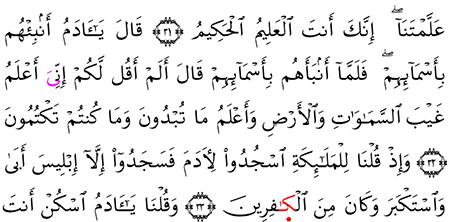 عَلَّمْتَنَآ ۖ إِنَّكَ أَنتَ ٱلْعَلِيمُ ٱلْحَكِيمُ ٣١ قَالَ يَـٰٓـَٔادَمُ أَنۢبِئْهُم
بِأَسْمَآئِهِمْ ۖ فَلَمَّآ أَنۢبَأَهُم بِأَسْمَآئِهِمْ قَالَ أَلَمْ أَقُل لَّكُمْ إِنِّىَ أَعْلَمُ
غَيْبَ ٱلسَّمَـٰوَٰتِ وَٱلْأَرْضِ وَأَعْلَمُ مَا تُبْدُونَ وَمَا كُنتُمْ تَكْتُمُونَ
٣٢ وَإِذْ قُلْنَا لِلْمَلَـٰٓئِكَةِ ٱسْجُدُوا۟ لِـَٔادَمَ فَسَجَدُوٓا۟ إِلَّآ إِبْلِيسَ أَبَىٰ
وَٱسْتَكْبَرَ وَكَانَ مِنَ ٱلْكَـٰفِرِينَ ٣٣ وَقُلْنَا يَـٰٓـَٔادَمُ ٱسْكُنْ أَنتَ